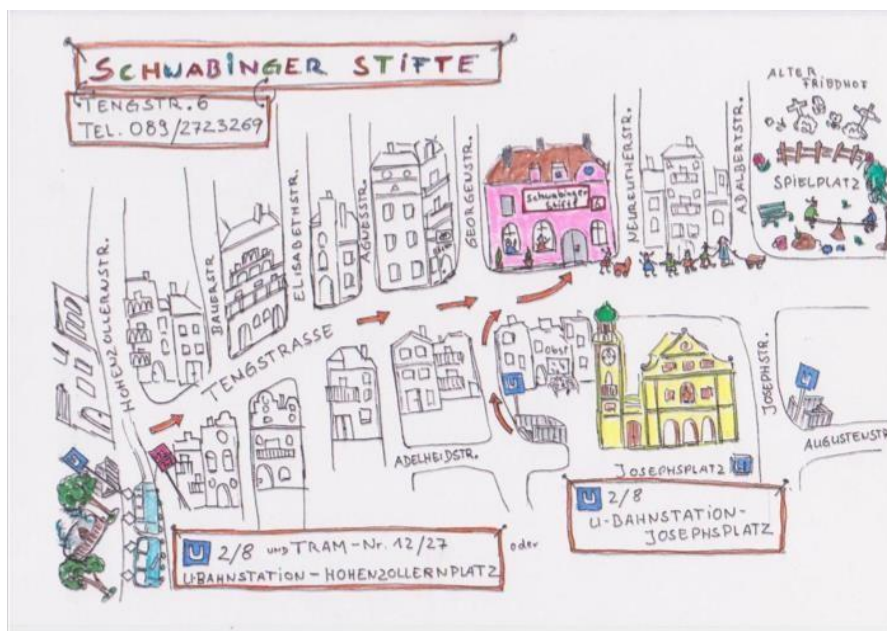 SCHWABINGER STIFTE
TENGSTR. 6
TEL. 089/2723269
HOHENZOLLERNSTR.
BAUERSTR.
ELISABETHSTR.
AGNESSTR.
GEORGENSTR.
Schwabinger
Stifte
6
NEUREUTHERSTR.
ADALBERTSTR.
ALTER
FRIEDHOF
SPIELPLATZ
TENGSTRASSE
Obst
U
ADELHEIDSTR.
JOSEPHSTR.
U
AUGUSTENSTR.
JOSEPHSPLATZ U
U 2/8
U-BAHNSTATION-
JOSEPHSPLATZ
U
U 2/8 UND TRAM-Nr. 12/27
U-BAHNSTATION-HOHENZOLLERNPLATZ
oder